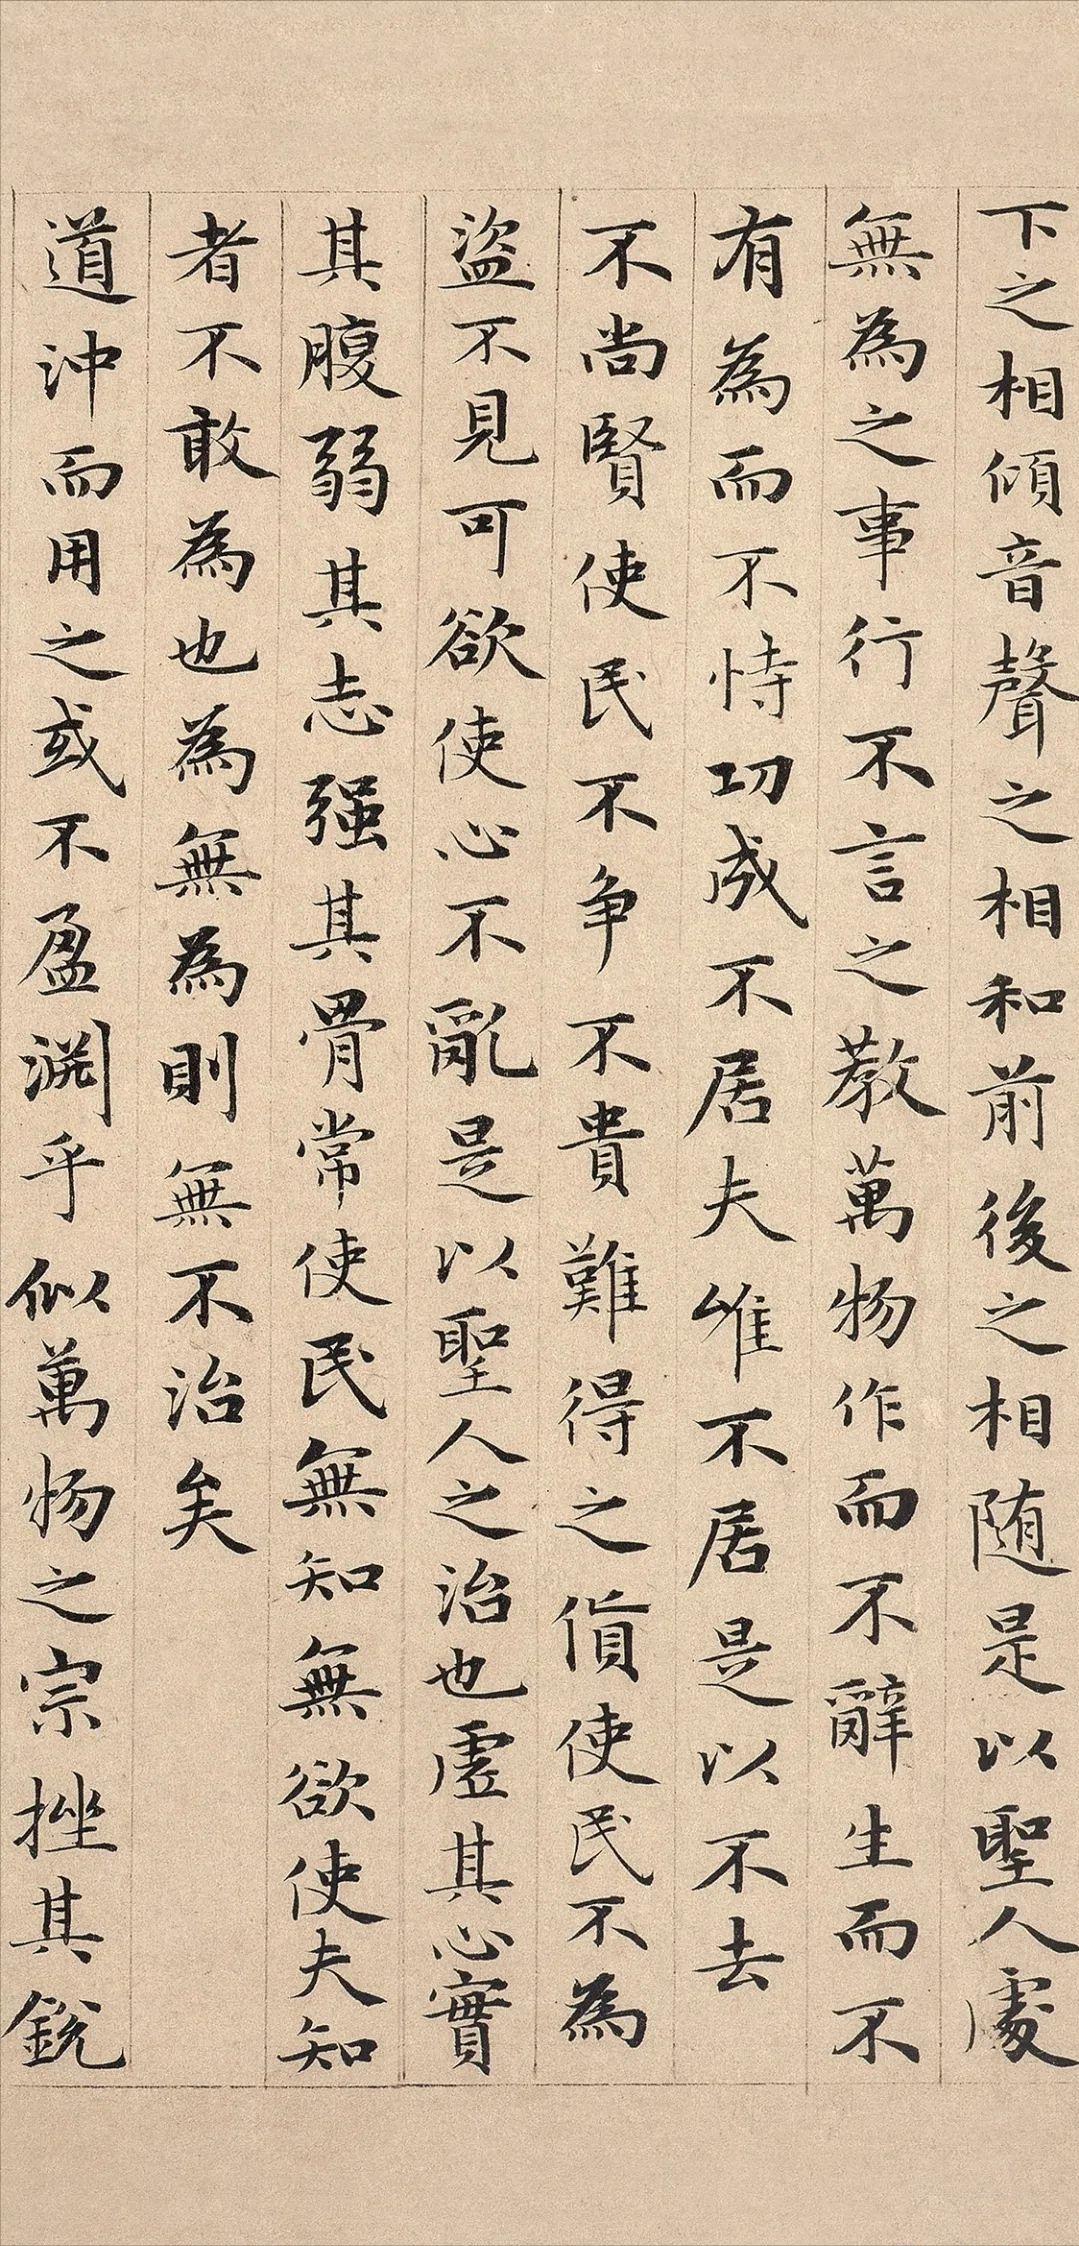 下之相傾音聲之相和前後之相随是以聖人處
無為之事行不言之教萬物作而不辭生而不
有為而不恃功成不居夫唯不居是以不去
不尚賢使民不争不貴難得之貨使民不為
盜不見可欲使心不亂是以聖人之治也虛其心實
其腹弱其志强其骨常使民無知無欲使夫知
者不敢為也為無為則無不治矣
道沖而用之或不盈淵乎似萬物之宗挫其銳